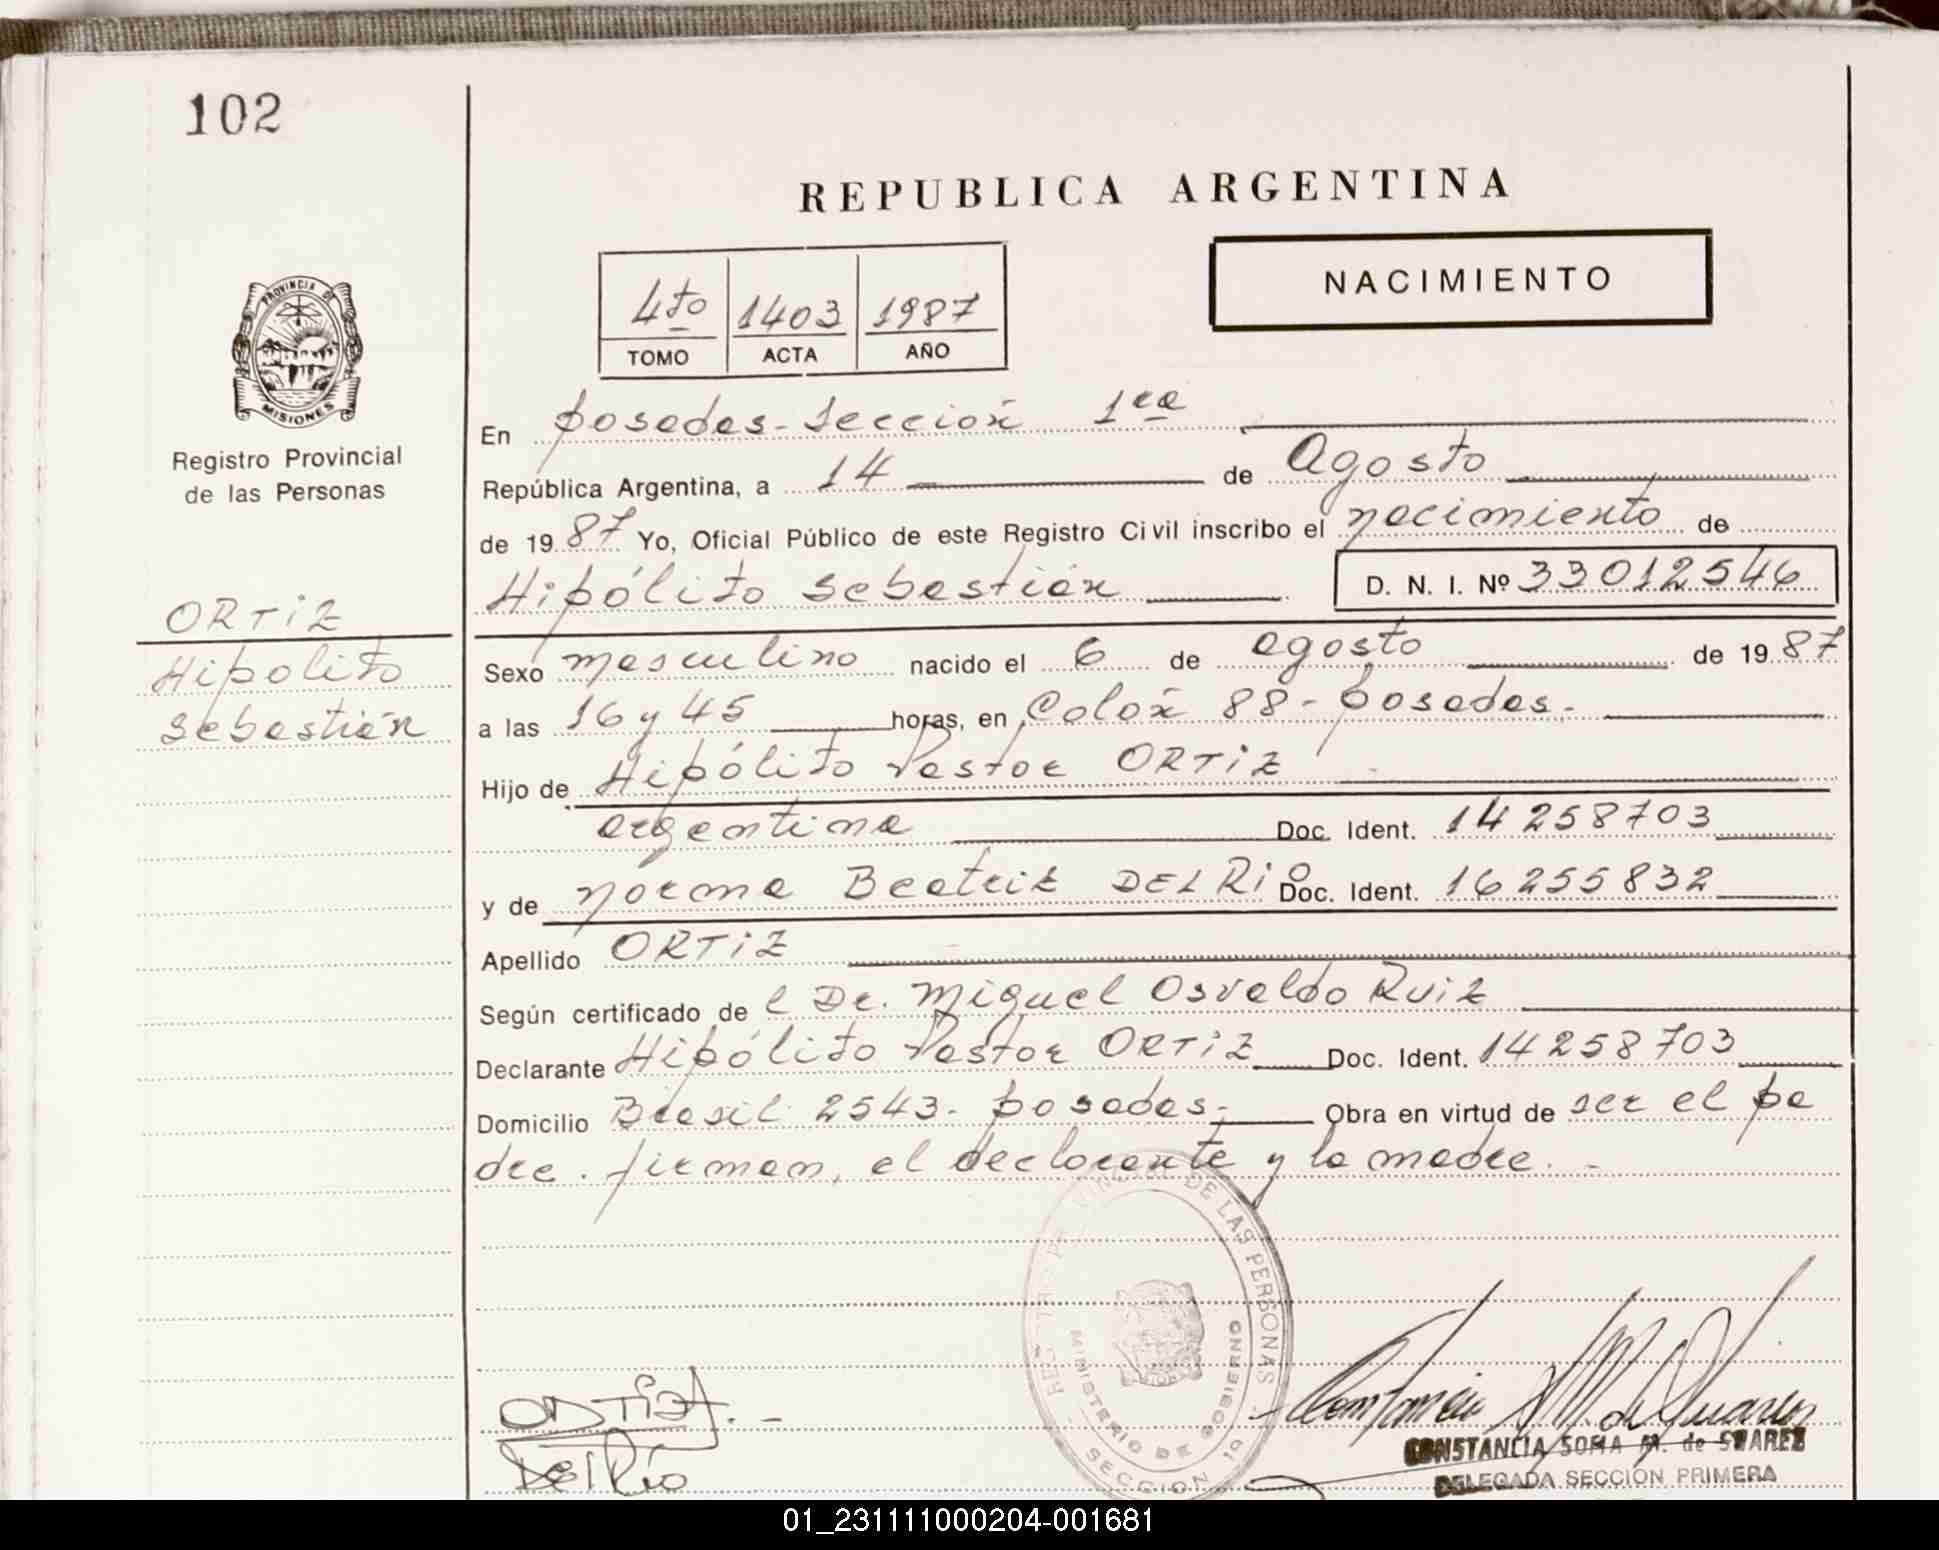 102
REPUBLICA ARGENTINA
NACIMIENTO
4to 1403 1987
TOMO ACTA AÑO
PROVINCIA DE
MISIONES
Registro Provincial
de las Personas
ORTiZ
Hipolito
Sebastián
En Posadas - Sección 1ra
República Argentina, a 14 de Agosto
de 1987 Yo, Oficial Público de este Registro Civil inscribo el nacimiento de
Hipólito Sebastián D. N. I. Nº 33012546
Sexo masculino nacido el 6 de agosto de 1987
a las 16 y 45 horas, en Colón 88 - Posadas.-
Hijo de Hipólito Pastor ORTiZ
argentina Doc. Ident. 14258703
y de Norma Beatriz DEL RiO Doc. Ident. 16255832
Apellido ORTiZ
Según certificado de l Dr. Miguel Osvaldo Ruiz
Declarante Hipólito Pastor ORTiZ Doc. Ident. 14258703
Domicilio Brasil 2543. Posadas.- Obra en virtud de ser el pa
dre. firman, el declarante y la madre. -
DE LAS PERSONAS
MINISTERIO DE GOBIERNO
SECCION 1ª
ORTiZ
Del Río
Constancia S M. de Suarez
CONSTANCIA SOFIA M. de SUAREZ
DELEGADA SECCION PRIMERA
01_231111000204-001681